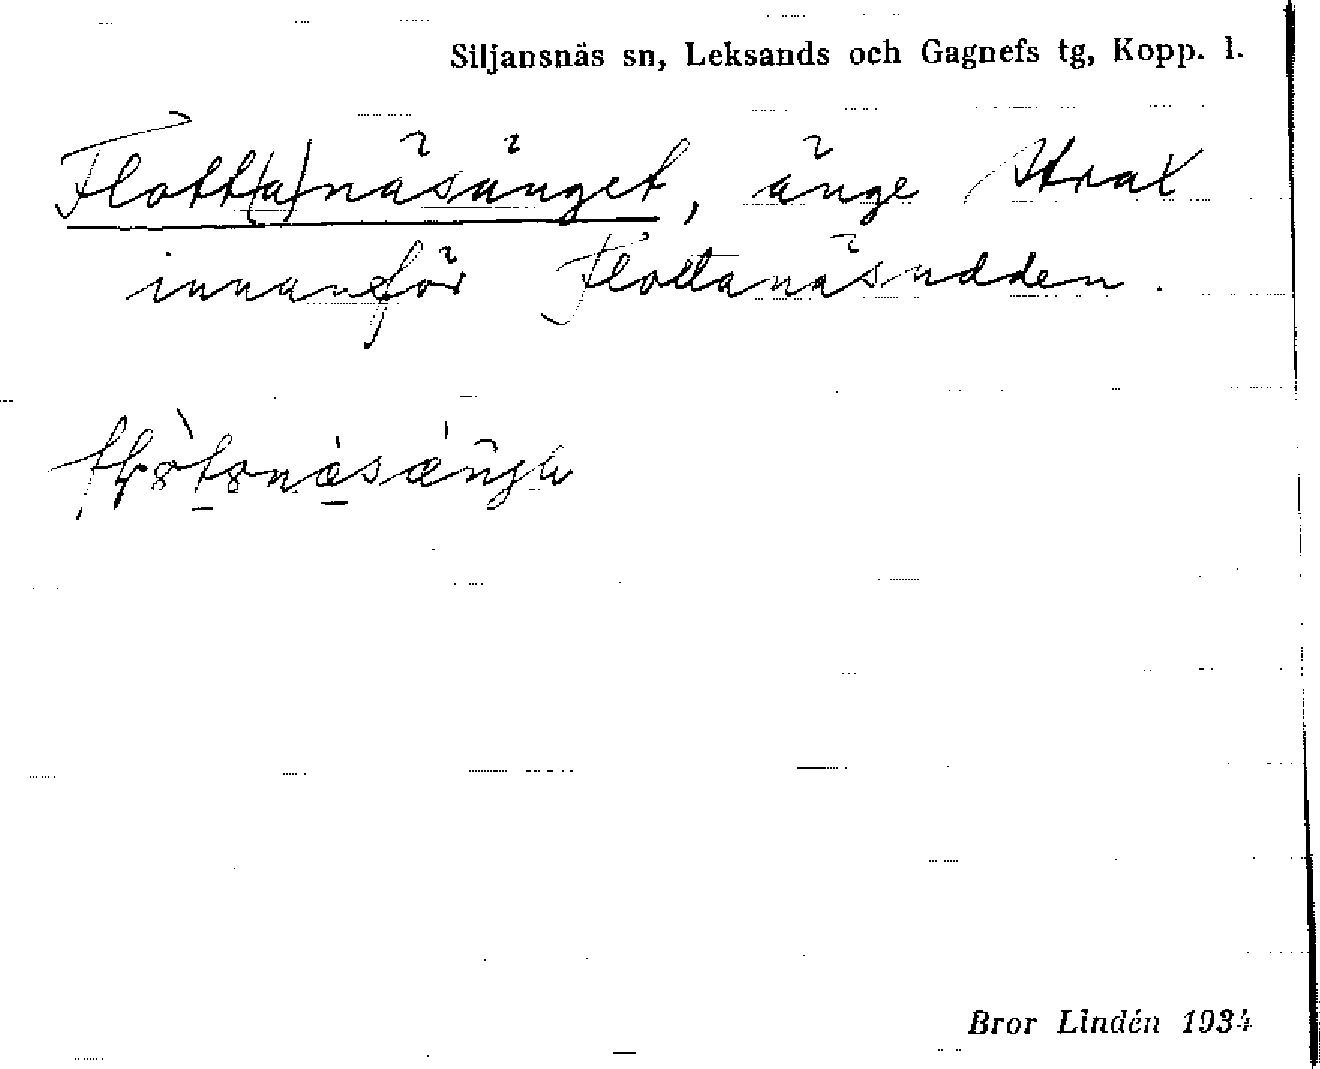 Siljansnäs sn, Leksands och Gagnefs tg, Kopp. l.
Flott(a)näsänget, änge strax
innanför Flottanäsudden.
Bror Lindén 1934